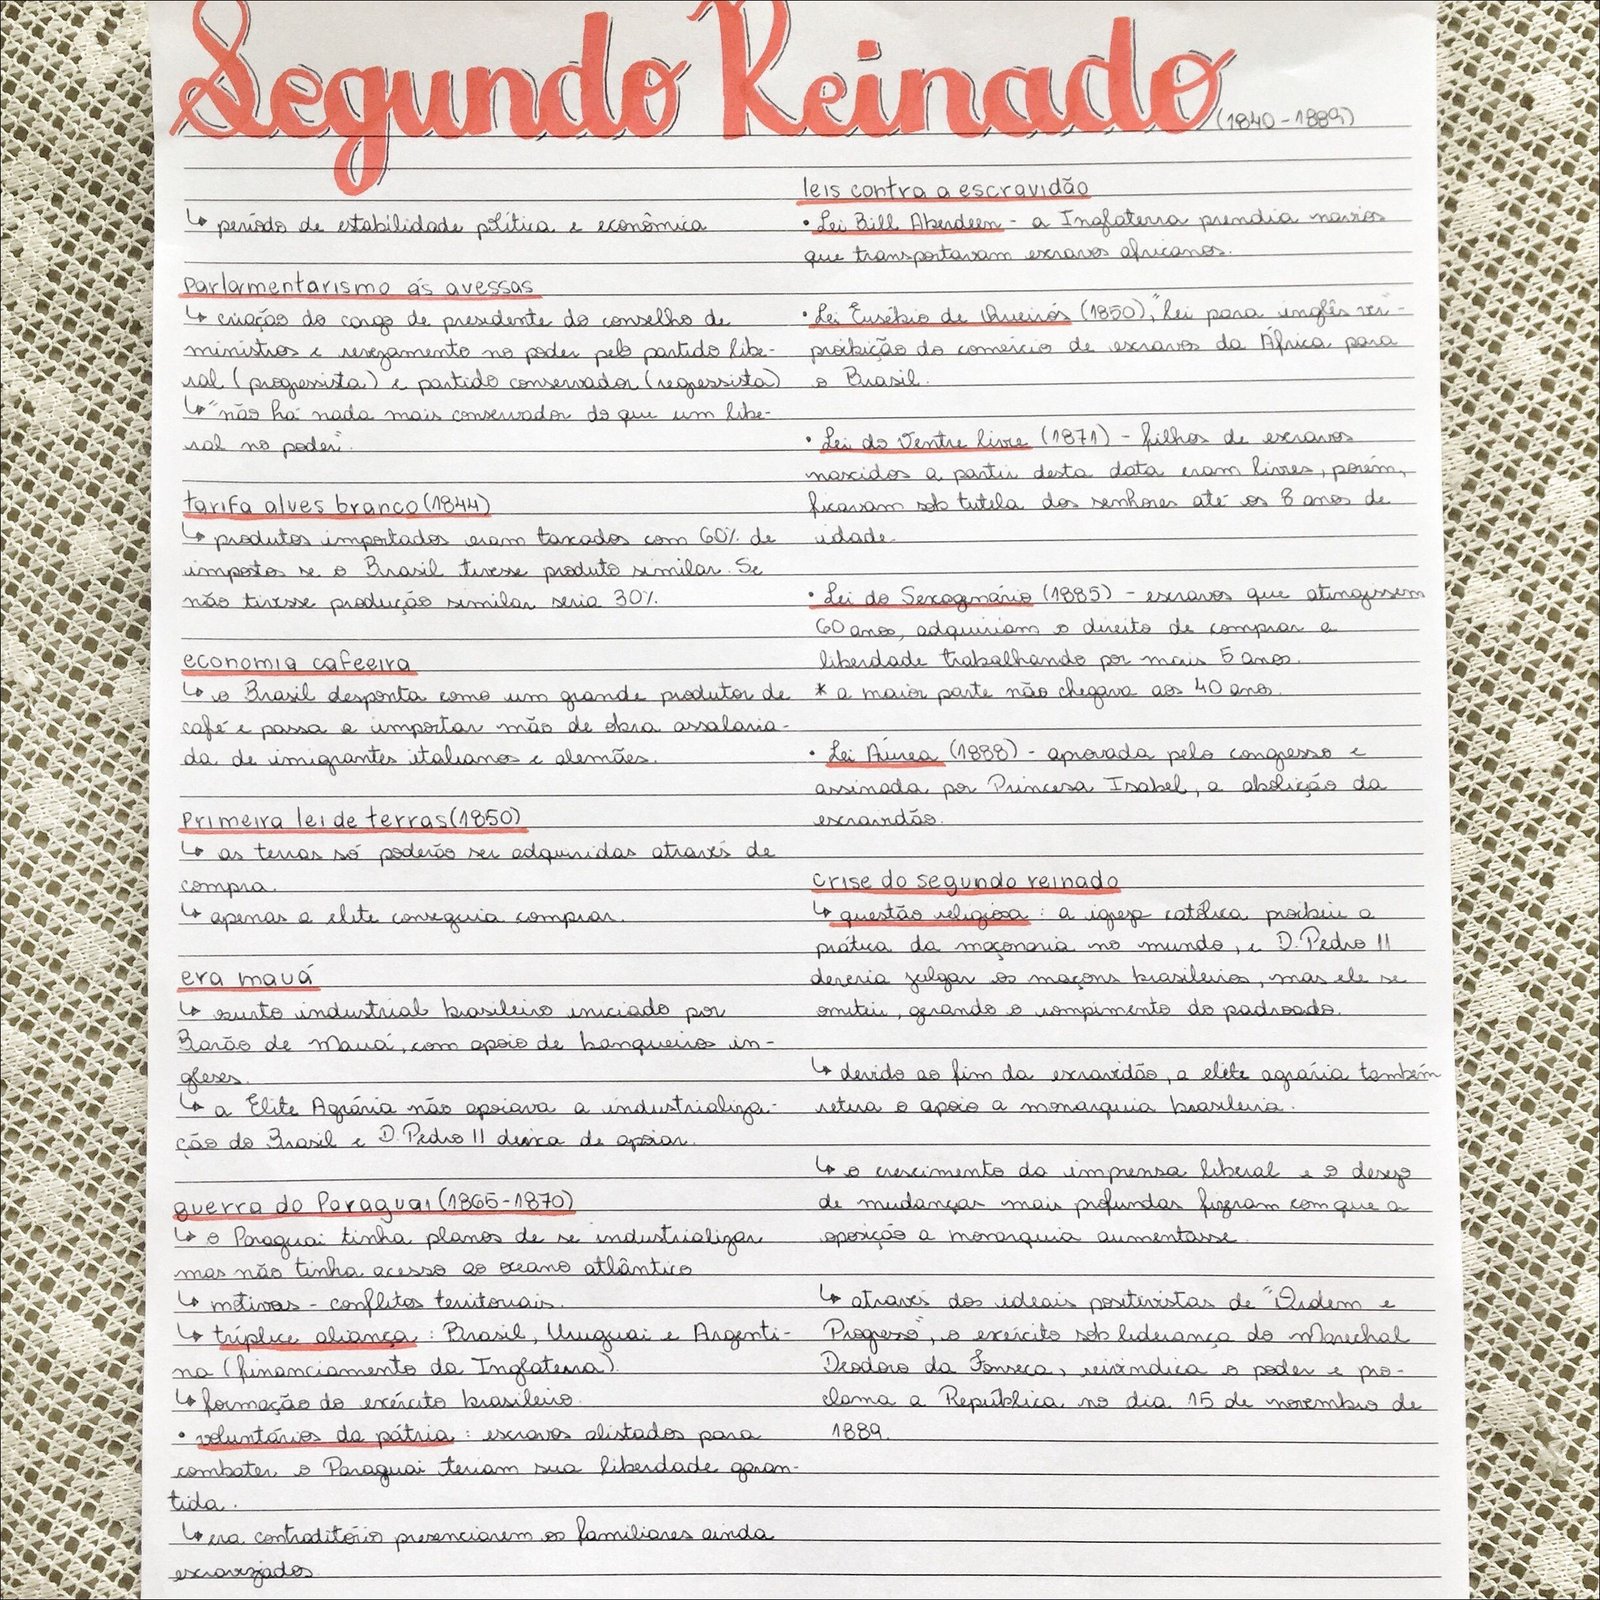 Segundo Reinado (1840-1889)
↳ período de estabilidade política e econômica
parlamentarismo ás avessas
↳ criação do cargo de presidente do conselho de
ministros e revezamento no poder pelo partido libe-
ral (progressista) e partido conservador (regressista)
↳ "não há nada mais conservador do que um libe-
ral no poder".
tarifa alves branco (1844)
↳ produtos importados eram taxados com 60% de
impostos se o Brasil tivesse produto similar. Se
não tivesse produção similar seria 30%.
economia cafeeira
↳ o Brasil desponta como um grande produtor de
café e passa a importar mão de obra assalaria-
da de imigrantes italianos e alemães.
primeira lei de terras (1850)
↳ as terras só poderão ser adquiridas através de
compra.
↳ apenas a elite conseguia comprar.
era mauá
↳ surto industrial brasileiro iniciado por
Barão de Mauá, com apoio de banqueiros in-
gleses.
↳ a Elite Agrária não apoiava a industrializa-
ção do Brasil e D. Pedro II deixa de apoiar.
guerra do Paraguai (1865-1870)
↳ o Paraguai tinha planos de se industrializar
mas não tinha acesso ao oceano atlântico
↳ motivos - conflitos territoriais.
↳ tríplice aliança: Brasil, Uruguai e Argenti-
na (financiamento da Inglaterra).
↳ formação do exército brasileiro.
• voluntários da pátria: escravos alistados para
combater o Paraguai teriam sua liberdade garan-
tida.
↳ era contraditório presenciarem os familiares ainda
escravizados
leis contra a escravidão
• Lei Bill Aberdeen - a Inglaterra prendia navios
que transportavam escravos africanos.
• Lei Eusébio de Queirós (1850), "lei para inglês ver" -
proibição do comércio de escravos da África para
o Brasil.
• Lei do Ventre livre (1871) - filhos de escravos
nascidos a partir desta data eram livres, porém,
ficavam sob tutela dos senhores até os 8 anos de
idade.
• Lei do Sexagenário (1885) - escravos que atingissem
60 anos, adquiriam o direito de comprar a
liberdade trabalhando por mais 5 anos.
* a maior parte não chegava aos 40 anos.
• Lei Áurea (1888) - aprovada pelo congresso e
assinada por Princesa Isabel, a abolição da
escravidão.
crise do segundo reinado
↳ questão religiosa: a igreja católica proibiu a
prática da maçonaria no mundo, e D. Pedro II
deveria julgar os maçons brasileiros, mas ele se
omitiu, gerando o rompimento do padroado.
↳ devido ao fim da escravidão, a elite agrária também
retira o apoio a monarquia brasileira.
↳ o crescimento da imprensa liberal e o desejo
de mudanças mais profundas fizeram com que a
oposição a monarquia aumentasse.
↳ através dos ideais positivistas de "Ordem e
Progresso", o exército sob liderança do Marechal
Deodoro da Fonseca, reivindica o poder e pro-
clama a República no dia 15 de novembro de
1889.